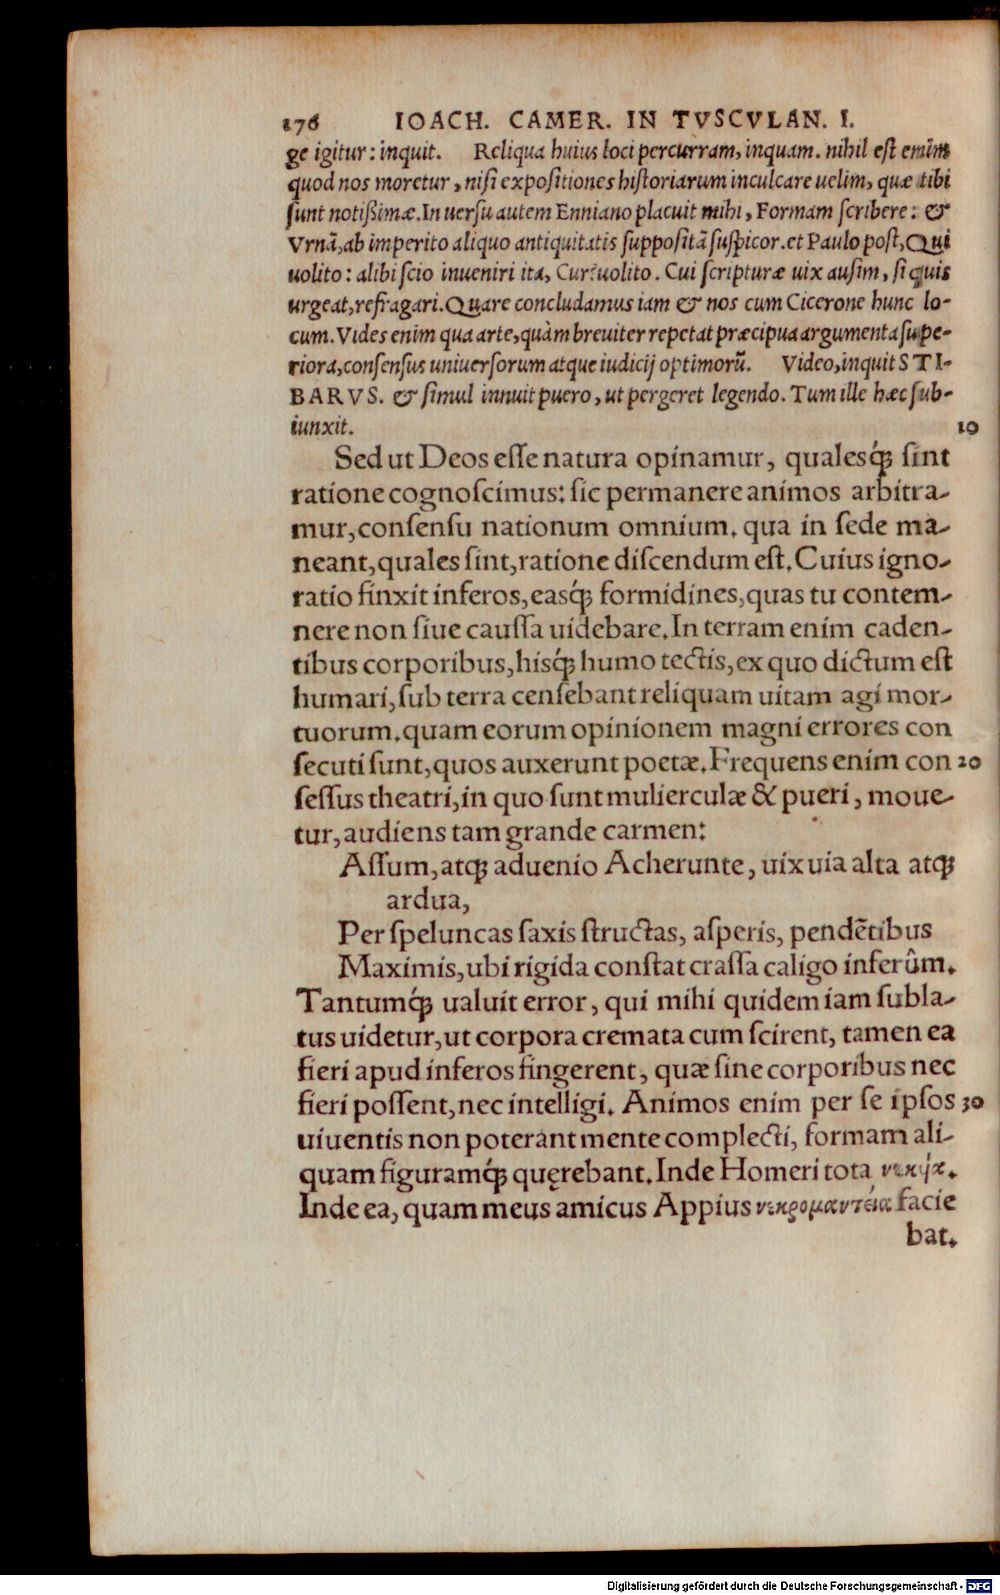 176 IOACH. CAMER. IN TVSCVLAN. I.
ge igitur: inquit. Reliqua huius loci percurram, inquam. nihil est enim
quod nos moretur, nisi expositiones historiarum inculcare uelim, quæ tibi
sunt notißimæ. In uersu autem Enniano placuit mihi, Formam scribere: &
Vrnã, ab imperito aliquo antiquitatis suppositã suspicor. et Paulo post, Qui
uolito: alibi scio inueniri ita, Cur: uolito. Cui scripturæ uix ausim, si quis
urgeat, refragari. Quare concludamus iam & nos cum Cicerone hunc lo-
cum. Vides enim qua arte, quàm breuiter repetat præcipua argumenta supe-
riora, consensus uniuersorum atque iudicij optimorũ. Video, inquit STI-
BARVS. & simul innuit puero, ut pergeret legendo. Tum ille hæc sub-
iunxit. 10
Sed ut Deos esse natura opinamur, qualesq́; sint
ratione cognoscimus: sic permanere animos arbitra-
mur, consensu nationum omnium. qua in sede ma-
neant, quales sint, ratione discendum est. Cuius igno-
ratio finxit inferos, easq́; formidines, quas tu contem-
nere non siue caussa uidebare. In terram enim caden-
tibus corporibus, hisq́; humo tectis, ex quo dictum est
humari, sub terra censebant reliquam uitam agi mor-
tuorum. quam eorum opinionem magni errores con
secuti sunt, quos auxerunt poetæ. Frequens enim con 20
sessus theatri, in quo sunt mulierculæ & pueri, moue-
tur, audiens tam grande carmen:
Assum, atq; aduenio Acherunte, uix uia alta atq;
ardua,
Per speluncas saxis structas, asperis, pendẽtibus
Maximis, ubi rigida constat crassa caligo inferûm.
Tantumq́; ualuit error, qui mihi quidem iam subla-
tus uidetur, ut corpora cremata cum scirent, tamen ea
fieri apud inferos fingerent, quæ sine corporibus nec
fieri possent, nec intelligi. Animos enim per se ipsos 30
uiuentis non poterant mente complecti, formam ali-
quam figuramq́; quęrebant. Inde Homeri tota νεκήα.
Inde ea, quam meus amicus Appius νεκρομαντεία facie
bat.
Digitalisierung gefördert durch die Deutsche Forschungsgemeinschaft - DFG